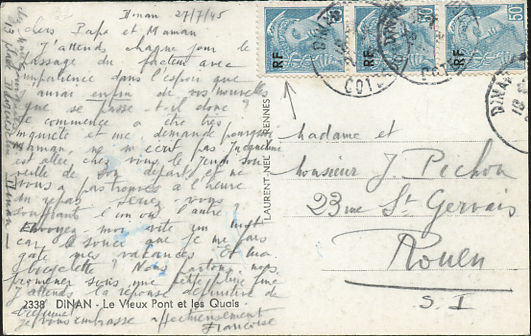 Dinan 27/7/45
chers Papa et Maman
J'attends chaque jour le
passage du facteur avec
impatience dans l'espoir que
aurai enfin de vos nouvelles
que se passe-t-il donc?
Je commence a être très
inquiète et me demande pourquoi
Maman, ne m'écrit pas
est allée chez vous le jeudi soir
veille de son départ et ne
vous a pas trouvés à l'heure
du repas. Seriez-vous
souffrant l'un ou l'autre?
Envoyez-moi vite un mot
car le souci que je me fais
gâte mes vacances. Et ma
bicyclette? Nous partons nous
promener sous une petite pluie fine
J'attends la réponse définitive de
je vous embrasse affectueusement
Françoise
2338 DINAN - Le Vieux Pont et les Quais
LAURENT-NEL RENNES
RF
50
RF
50
RF
50
DINAN
DINAN
DINAN
madame et
monsieur J. Pechon
23 rue St Gervais
Rouen
S. I